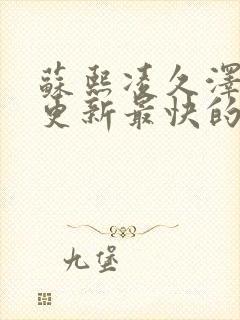 蘇熙凌久澤
更新最快的
九堡